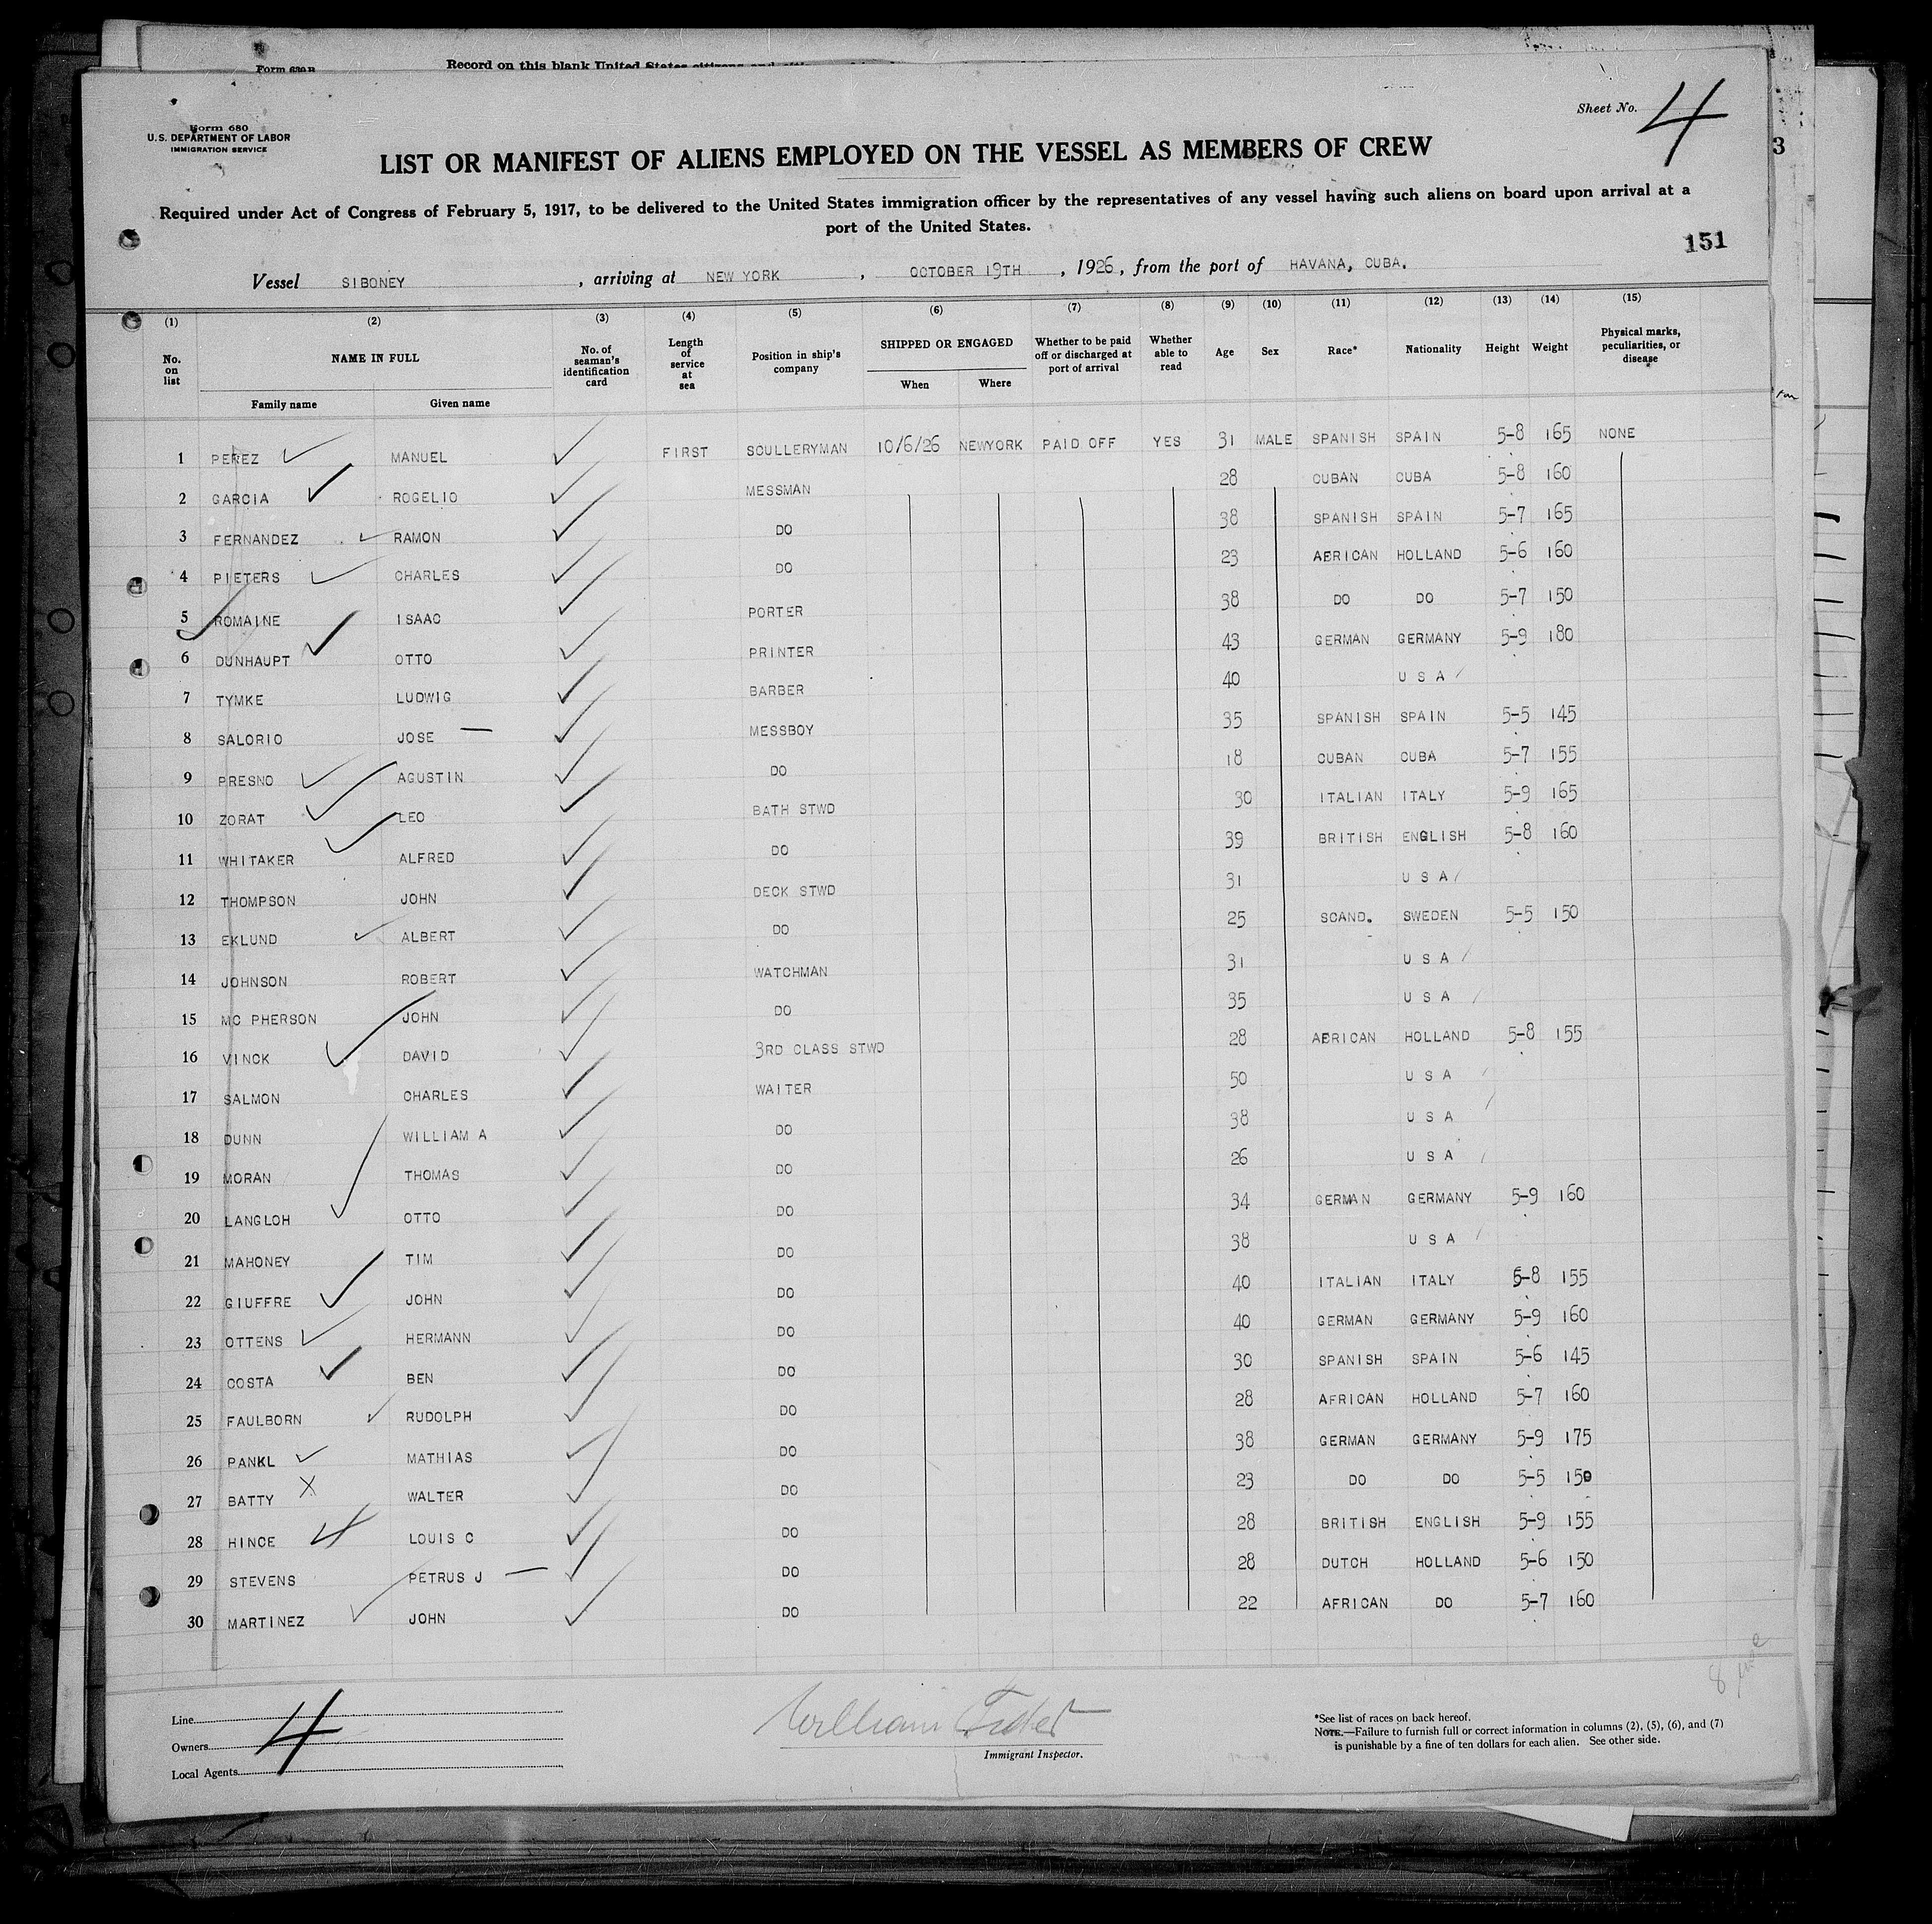 Form 630B Record on this blank United States citizens and
Sheet No. 4
3
Form 680
U. S. DEPARTMENT OF LABOR
IMMIGRATION SERVICE
LIST OR MANIFEST OF ALIENS EMPLOYED ON THE VESSEL AS MEMBERS OF CREW
Required under Act of Congress of February 5, 1917, to be delivered to the United States immigration officer by the representatives of any vessel having such aliens on board upon arrival at a
port of the United States.
151
Vessel SIBONEY, arriving at NEW YORK, OCTOBER 19TH, 1926, from the port of HAVANA, CUBA.
(1) (2) (3) (4) (5) (6) (7) (8) (9) (10) (11) (12) (13) (14) (15)
No. on list NAME IN FULL No. of seaman's identification card Length of service at sea Position in ship's company SHIPPED OR ENGAGED Whether to be paid off or discharged at port of arrival Whether able to read Age Sex Race* Nationality Height Weight Physical marks, peculiarities, or disease
Family name Given name When Where
1 PEREZ MANUEL FIRST SCULLERYMAN 10/6/26 NEWYORK PAID OFF YES 31 MALE SPANISH SPAIN 5-8 165 NONE
2 GARCIA ROGELIO MESSMAN 28 CUBAN CUBA 5-8 160
3 FERNANDEZ RAMON DO 38 SPANISH SPAIN 5-7 165
4 PIETERS CHARLES DO 23 AFRICAN HOLLAND 5-6 160
5 ROMAINE ISAAC PORTER 38 DO DO 5-7 150
6 DUNHAUPT OTTO PRINTER 43 GERMAN GERMANY 5-9 180
7 TYMKE LUDWIG BARBER 40 U S A
8 SALORIO JOSE MESSBOY 35 SPANISH SPAIN 5-5 145
9 PRESNO AGUSTIN DO 18 CUBAN CUBA 5-7 155
10 ZORAT LEO BATH STWD 30 ITALIAN ITALY 5-9 165
11 WHITAKER ALFRED DO 39 BRITISH ENGLISH 5-8 160
12 THOMPSON JOHN DECK STWD 31 U S A
13 EKLUND ALBERT DO 25 SCAND. SWEDEN 5-5 150
14 JOHNSON ROBERT WATCHMAN 31 U S A
15 MC PHERSON JOHN DO 35 U S A
16 VINCK DAVID 3RD CLASS STWD 28 AFRICAN HOLLAND 5-8 155
17 SALMON CHARLES WAITER 50 U S A
18 DUNN WILLIAM A DO 38 U S A
19 MORAN THOMAS DO 26 U S A
20 LANGLOH OTTO DO 34 GERMAN GERMANY 5-9 160
21 MAHONEY TIM DO 38 U S A
22 GIUFFRE JOHN DO 40 ITALIAN ITALY 5-8 155
23 OTTENS HERMANN DO 40 GERMAN GERMANY 5-9 160
24 COSTA BEN DO 30 SPANISH SPAIN 5-6 145
25 FAULBORN RUDOLPH DO 28 AFRICAN HOLLAND 5-7 160
26 PANKL MATHIAS DO 38 GERMAN GERMANY 5-9 175
27 BATTY X WALTER DO 23 DO DO 5-5 150
28 HINCE LOUIS C DO 28 BRITISH ENGLISH 5-9 155
29 STEVENS PETRUS J DO 28 DUTCH HOLLAND 5-6 150
30 MARTINEZ JOHN DO 22 AFRICAN DO 5-7 160
Line
Owners
Local Agents
4
William
Immigrant Inspector.
*See list of races on back hereof.
NOTE.—Failure to furnish full or correct information in columns (2), (5), (6), and (7)
is punishable by a fine of ten dollars for each alien. See other side.